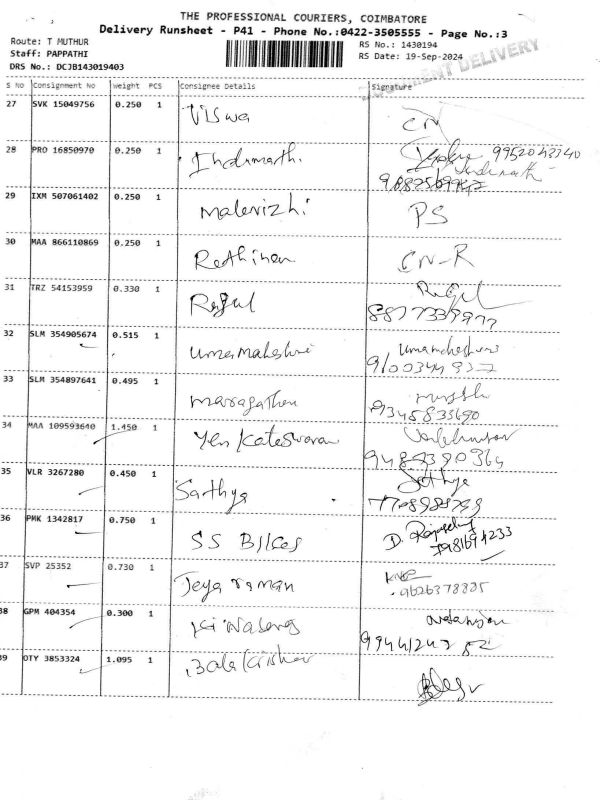 THE PROFESSIONAL COURIERS, COIMBATORE
Delivery Runsheet - P41 - Phone No.:0422-3505555 - Page No.:3
Route: T MUTHUR
RS No.: 1430194
Staff: PAPPATHI
RS Date: 19-Sep-2024
DRS No.: DCJB143019403
DELIVERY
S No Consignment No Weight PCS Consignee Details Signature
27 SVK 15049756 0.250 1 Viswa CN
28 PRO 16850970 0.250 1 Indumathi 9952043340
29 IXM 507061402 0.250 1 Malarvizhi PS
30 MAA 866110869 0.250 1 Rathinam CN-R
31 TRZ 54153959 0.330 1 Ragul Ragul
32 SLM 354905674 0.515 1 Umamaheshwari
33 SLM 354897641 0.495 1 Maragatham
9345833690
34 MAA 109593640 1.450 1 Yenkateswaran
35 VLR 3267280 0.450 1 Sathya Sathya
36 PMK 1342817 0.750 1 SS Bikes D.
37 SVP 25352 0.730 1 Jeyaraman
9626378885
38 GPM 404354 0.300 1 Natarajan
39 OTY 3853324 1.095 1 Balakrishnan